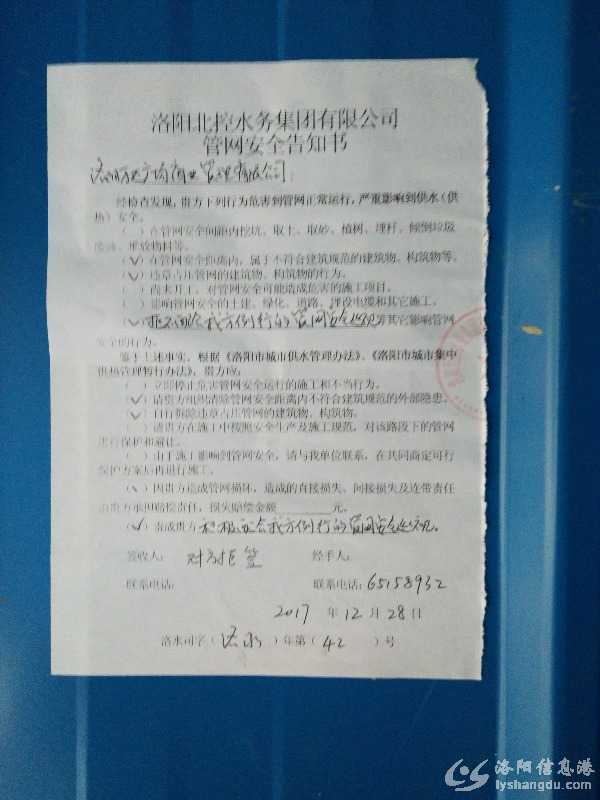 洛阳北控水务集团有限公司
管网安全告知书
管理有限公司:
经检查发现,贵方下列行为危害到管网正常运行,严重影响到供水(供
热)安全。
( )在管网安全间距内挖坑、取土、取砂、植树、埋杆、倾倒垃圾
堆放物料等。
(✓)在管网安全距离内,属于不符合建筑规范的建筑物、构筑物等。
(✓)违章占压管网的建筑物、构筑物的行为。
( )尚未开工,对管网安全可能造成危害的施工项目。
( )影响管网安全的土建、绿化、道路、埋设电缆和其它施工。
(✓)拒不配合我方例行的管网安全巡视等其它影响管网
安全的行为。
鉴于上述事实,根据《洛阳市城市供水管理办法》、《洛阳市城市集中
供热管理暂行办法》,贵方应:
( )立即停止危害管网安全运行的施工和不当行为。
(✓)请贵方组织清除管网安全距离内不符合建筑规范的外部隐患。
(✓)自行拆除违章占压管网的建筑物、构筑物。
( )请贵方在施工中按照安全生产及施工规范,对该路段下的管网
进行保护和避让。
( )由于施工影响到管网安全,请与我单位联系,在共同商定可行
保护方案后再进行施工。
(✓)因贵方造成管网损坏,造成的直接损失、间接损失及连带责任
由贵方承担赔偿责任,损失赔偿金额 元。
(✓)责成贵方积极配合我方例行的管网安全巡视。
签收人: 对方拒签 经手人:
联系电话: 联系电话:65158932
2017 年 12 月 28 日
洛水司字(洛水)年第(42)号
洛阳信息港
lyshangdu.com